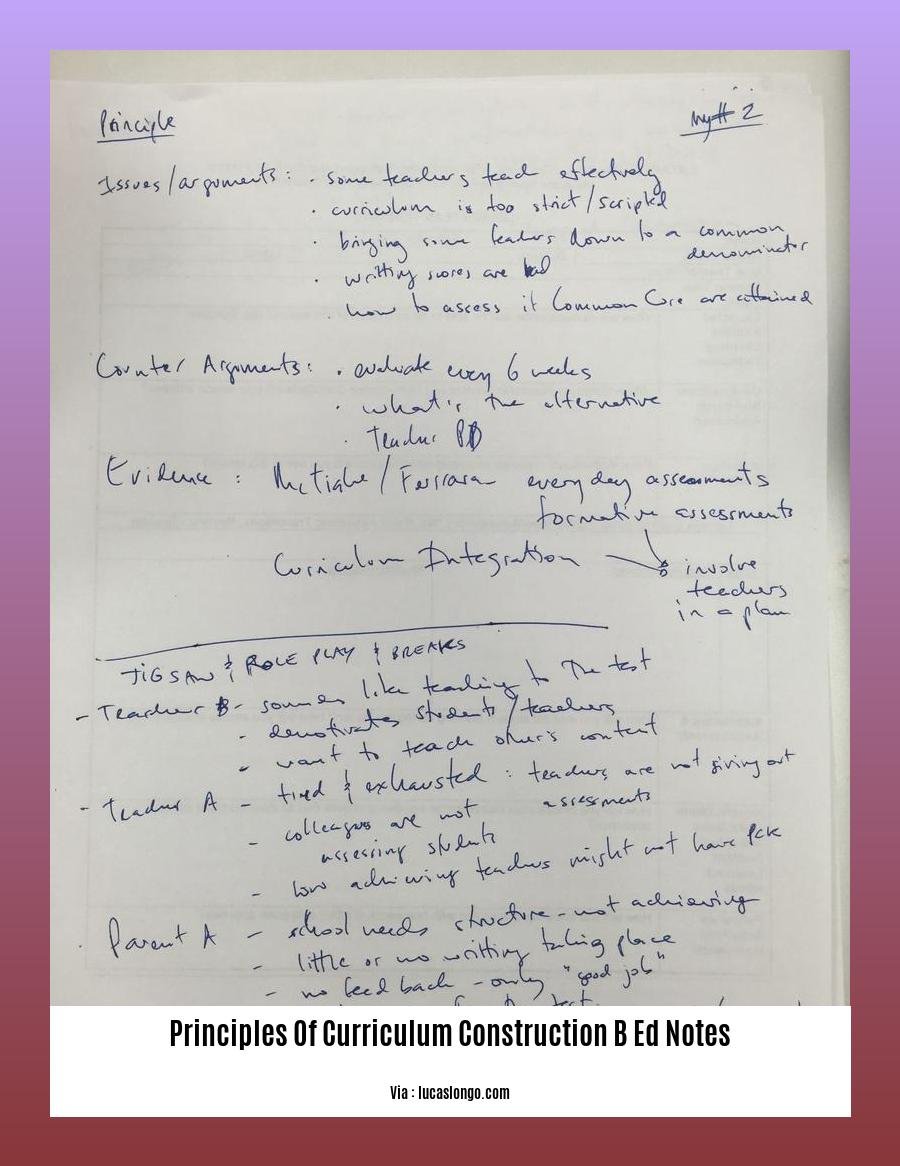 Principle
Myth 2
Issues/arguments: · some teachers teach effectively
· curriculum is too strict/scripted
· bringing some teachers down to a common
denominator
· writting scores are bad
· how to assess if Common Core are attained
Counter Arguments: · evaluate every 6 weeks
· what's the alternative
· teacher PD
Evidence : McTighe/Ferrara everyday assessments
formative assessments
Curriculum Integration
involve
teachers
in a plan
JIGSAW & ROLE PLAY & BREAKS
- Teacher B - sounds like teaching to the test
- demotivates students/teachers
- want to teach other's content
- Teacher A - tired & exhausted : teachers are not giving out
assessments
- colleagues are not
assessing students
- low achieving teachers might not have PCK
· Parent A - school needs structure - not achieving
- little or no writting taking place
- no feed back - only "good job"
test
Principles Of Curriculum Construction B Ed Notes
Via : lucaslongo.com